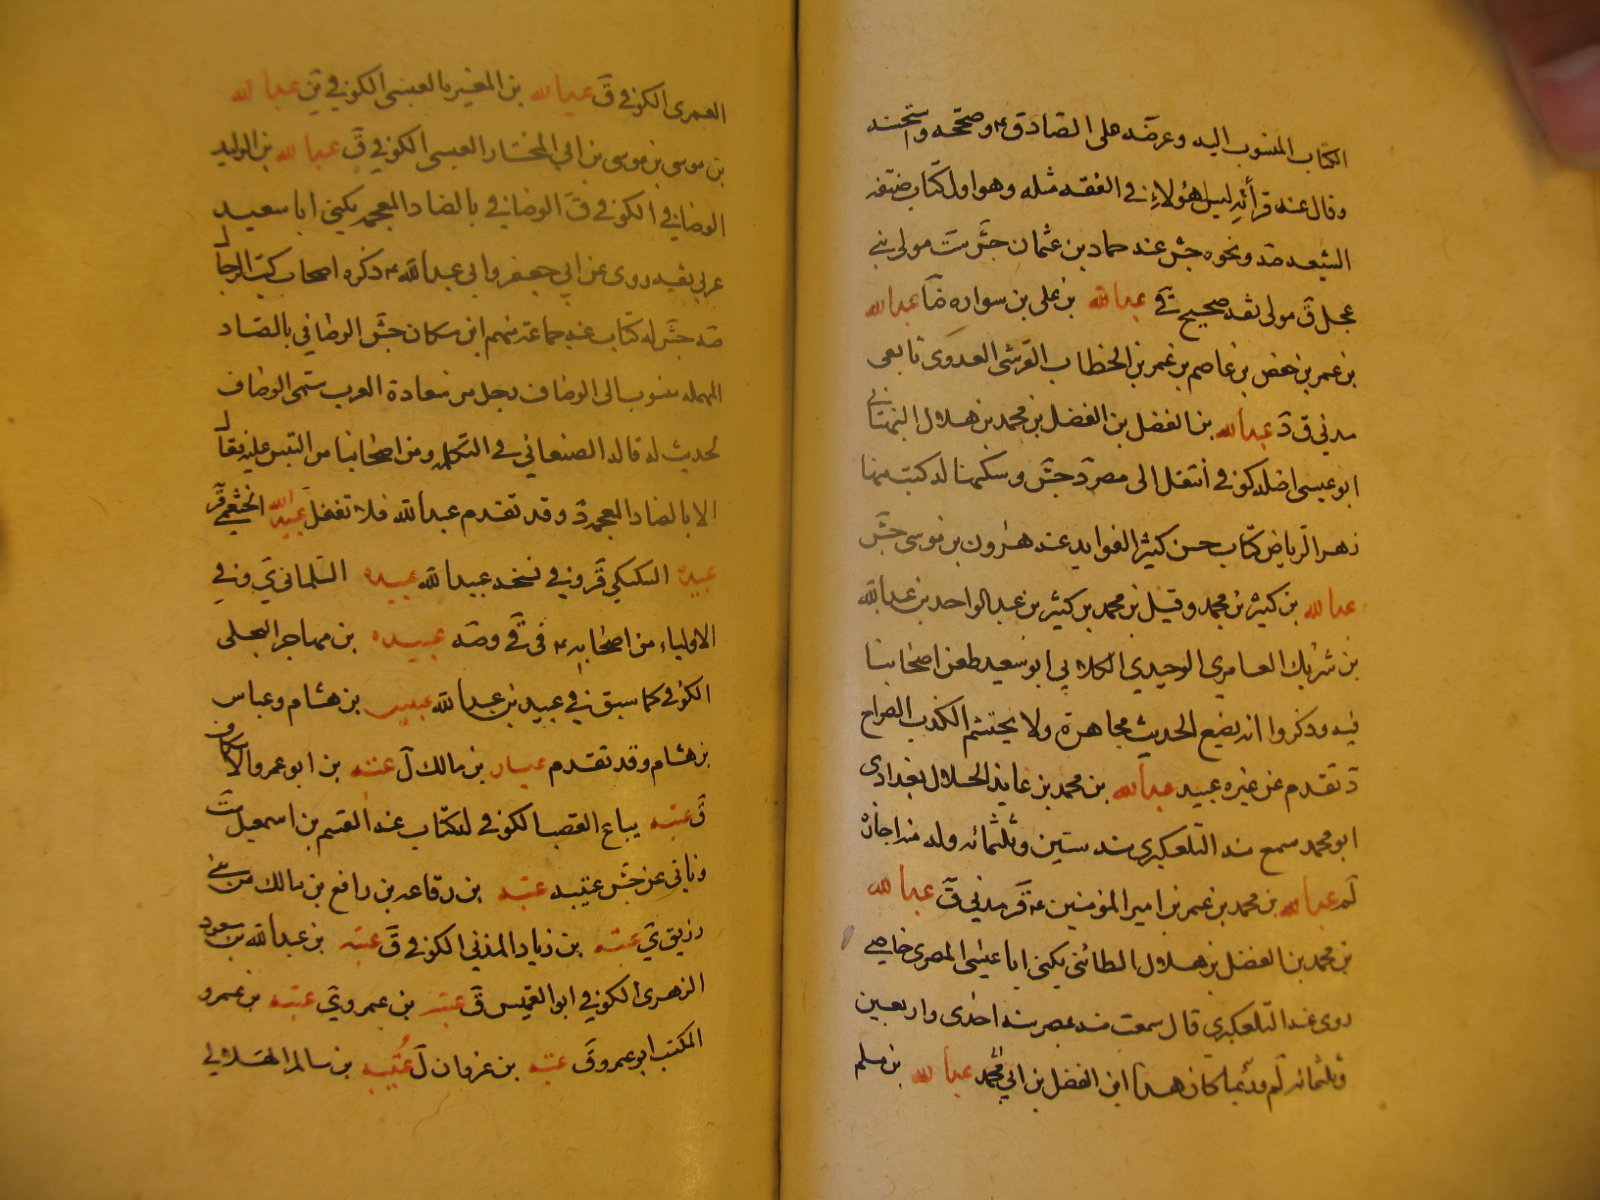 الكتاب المنسوب اليه وعرضه على الصادق ع وصححه واستحسنه
وقال عند قرأته ليس لهؤلاء في الفقه مثله وهو اول كتاب صنفه
الشيعه صه ونحوه جش عند حماد بن عثمان جش ست مولى بني
عجل ق مولى ثقه صحيح في عبدالله بن علي بن سواره ضا عبدالله
بن عمر بن حفص بن عاصم بن عمر بن الخطاب القرشي العدوي تابعي
مدني ق د عبدالله بن الفضل بن الفضل بن محمد بن هلال النبهاني
ابو عيسى اصله كوفي انتقل الى مصر د جش وسكنها له كتب منها
زهر الرياض كتاب حسن كثير الفوايد عنه هرون بن موسى جش
عبدالله بن كثير بن محمد وقيل بن محمد بن كثير بن عبدالواحد بن عبدالله
بن شريك العامري الوحيدي الكلابي ابو سعيد طعن اصحابنا
فيه وذكروا انه يضع الحديث مجاهرة ولا يحتشم الكذب الصراح
د تقدم عن غيره عبيد عبدالله بن محمد بن عايذ الحلال بغدادي
ابو محمد سمع منه التلعكبري سنه ستين وثلثمائه وله منه اجازة
لم عبدالله بن محمد بن عمر بن امير المؤمنين ع قر مدني ق عبدالله
بن محمد بن الفضل بن هلال الطائي يكنى ابا عيسى المصري خاصي
روى عنه التلعكبري قال سمعت منه بمصر سنه احدى واربعين
وثلثمائه لم وربما كان هذا ابن الفضل بن ابي محمد عبدالله بن مسلم
العمري الكوفي ق عبدالله بن المغيره العبسي الكوفي ق عبدالله
بن موسى بن موسى بن ابي المختار العبسي الكوفي ق عبدالله بن الوليد
الوصافي الكوفي ق الوضافي بالضاد المعجمه يكنى ابا سعيد
عربي ثقه روى عن ابي جعفر وابي عبدالله ع ذكره اصحاب كتب الرجال
صه جش له كتاب عنه جماعه منهم ابن مسكان جش الوصافي بالصاد
المهمله منسوب الى الوصاف رجل من سادة العرب سمى الوصاف
لحديث له قاله الصنعاني في التكمله ومن اصحابنا من التبس عليه فقال
الا بالضاد المعجمه د وقد تقدم عبدالله فلا تغفل عبيدالله الخثعمي قر
عبيده السكسكي قر وفي نسخه عبيدالله عبيده السلماني ي وفي
الاولياء من اصحابه ع في ق وصه عبيده بن مهاجر البجلي
الكوفي كما سبق في عبيد بن عبدالله عبيس بن هشام وعباس
بن هشام وقد تقدم عتبان بن مالك ل عتبه بن ابو عمرو الاسكاف
ق عتبه بياع القصب الكوفي له كتاب عنه القسم بن اسمعيل ست
وياتي عن جش عتيبه عتبه بن رفاعه بن رافع بن مالك من بني
زريق ي عتبه بن زياد المدني الكوفي ق عتبه بن عبدالله بن مسعود
الزهري الكوفي ابو العميس ق عتبه بن عمرو ي عتبه بن عمرو
المكتب ابو عمرو ق عتبه بن غزوان ل عتيبه بن سالم الهلالي